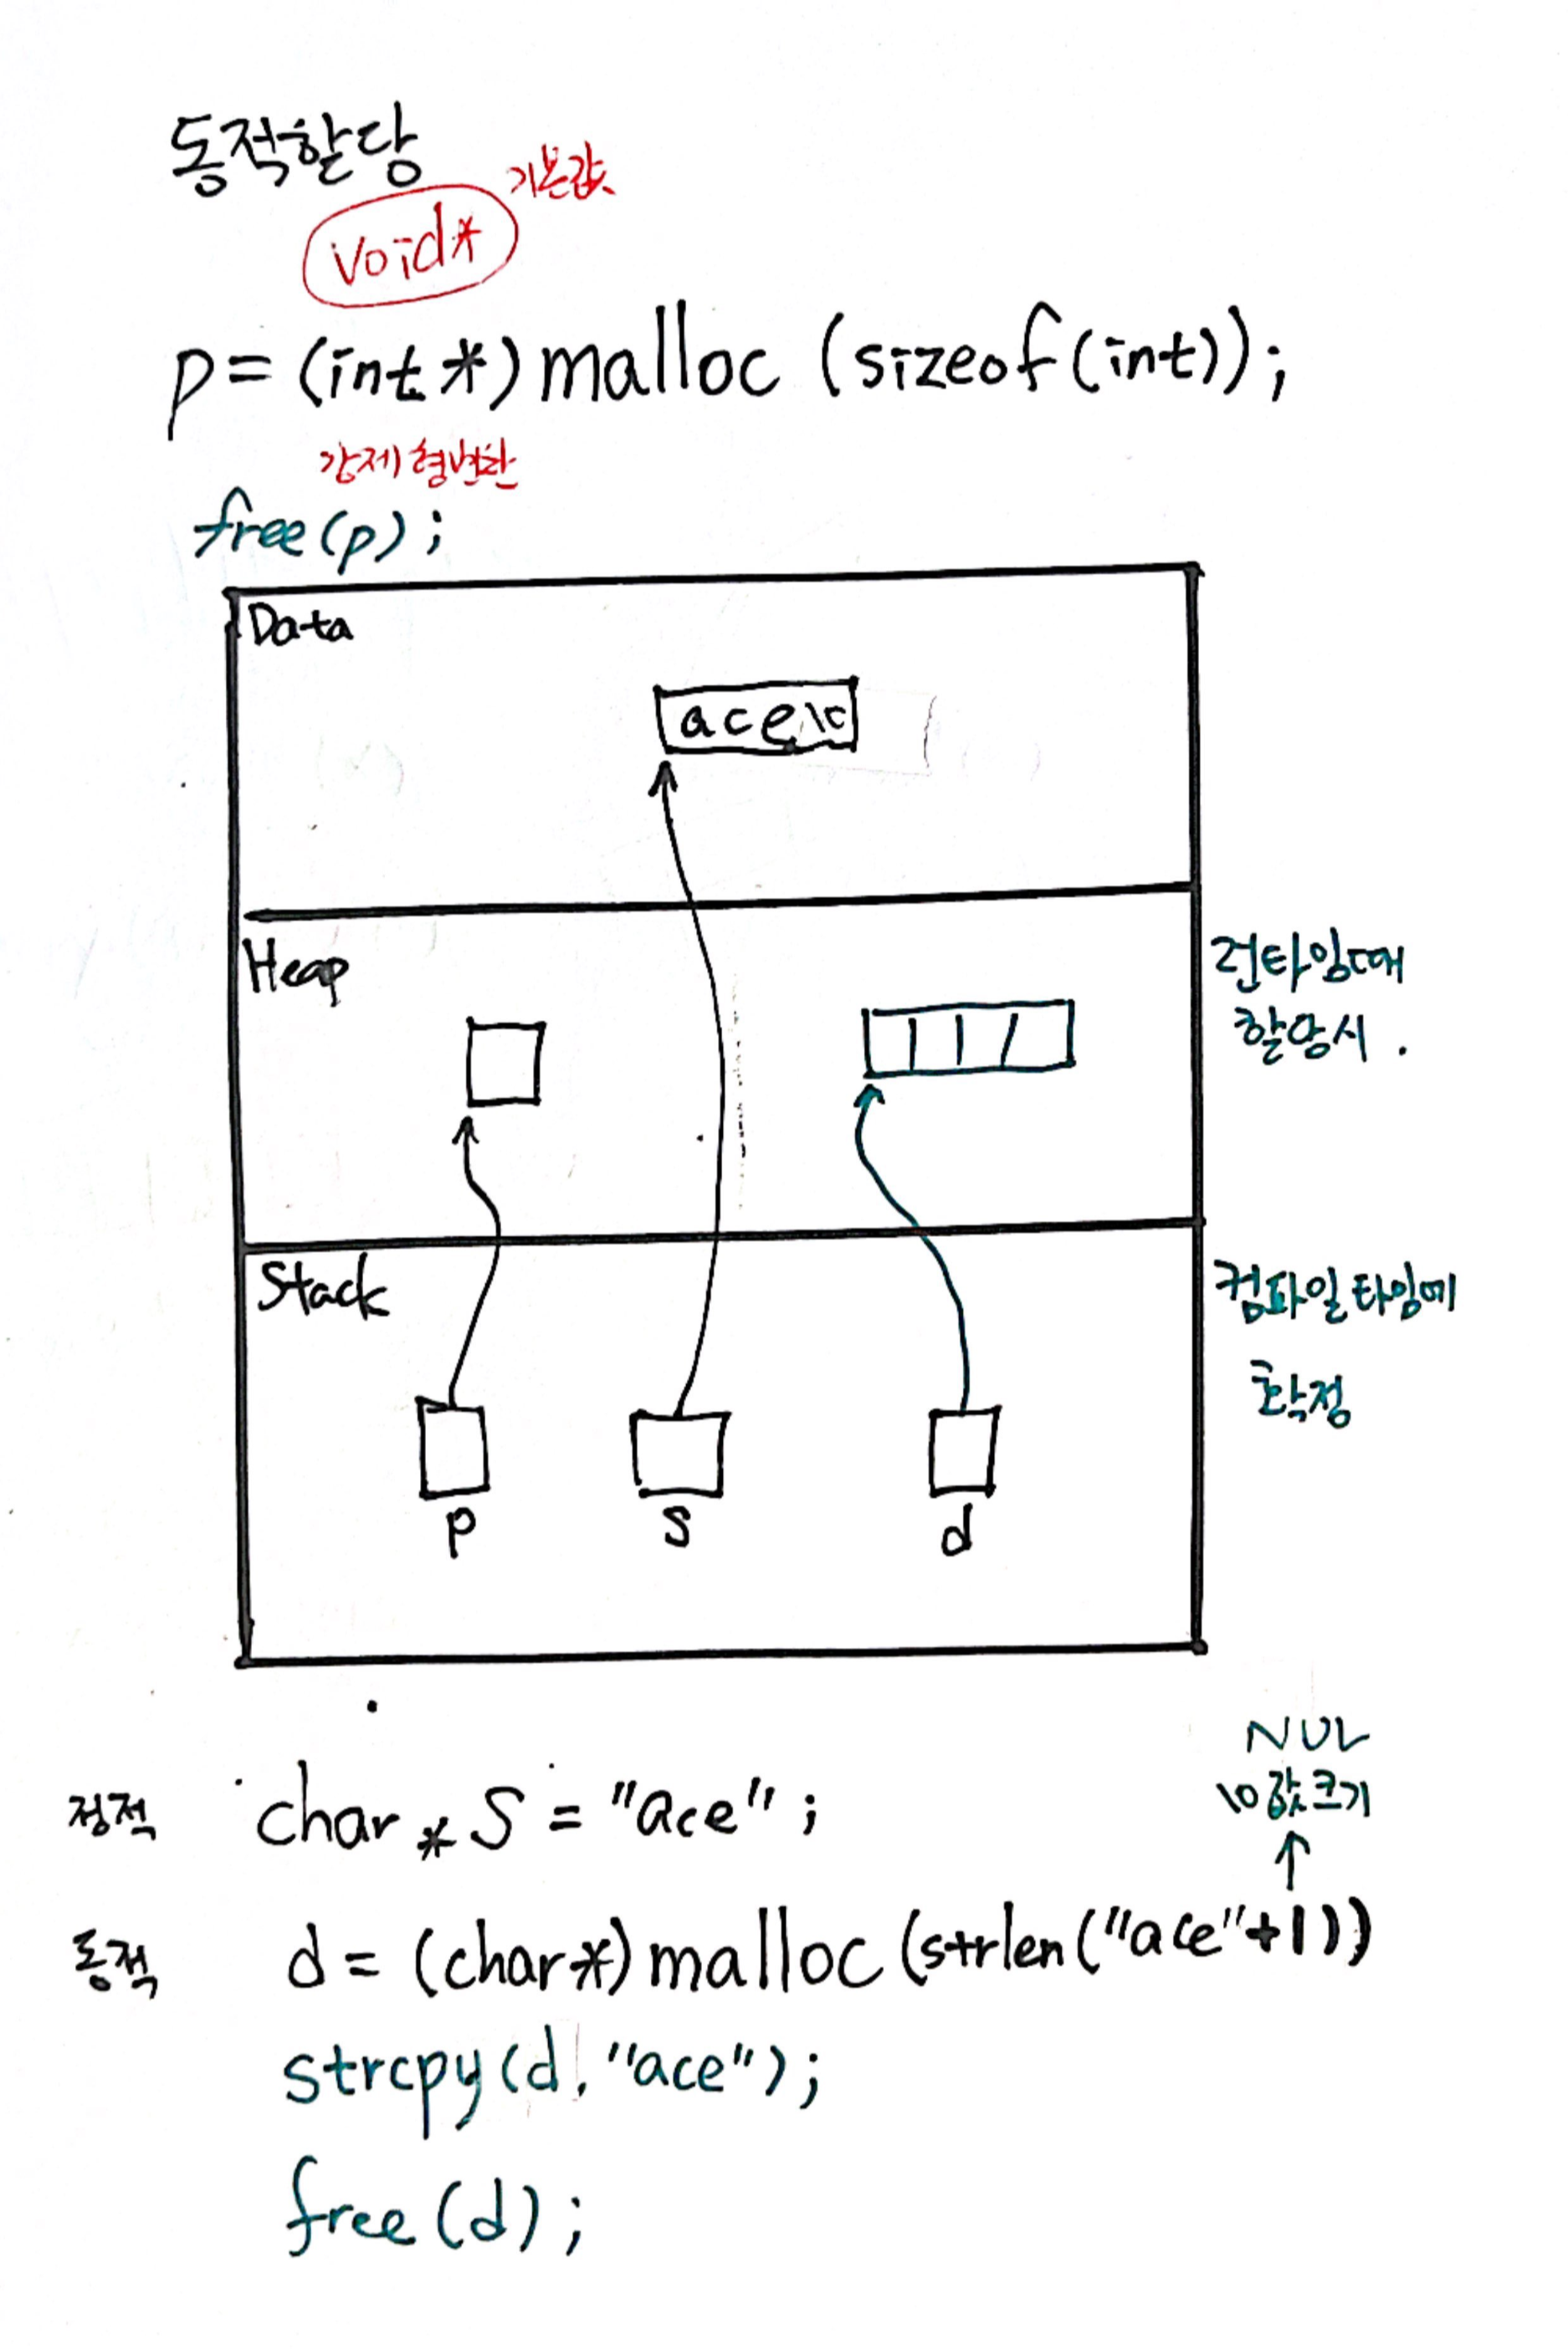 동적할당
기본값
void*
p = (int *) malloc (sizeof(int));
강제형변환
free(p);
Data
ace\0
Heap
런타임때
할당시.
Stack
컴파일 타임에
확정
p
s
d
NUL
\0 값 크기
↑
정적 char * S = "ace";
동적 d = (char*) malloc (strlen("ace"+1))
strcpy(d, "ace");
free(d);